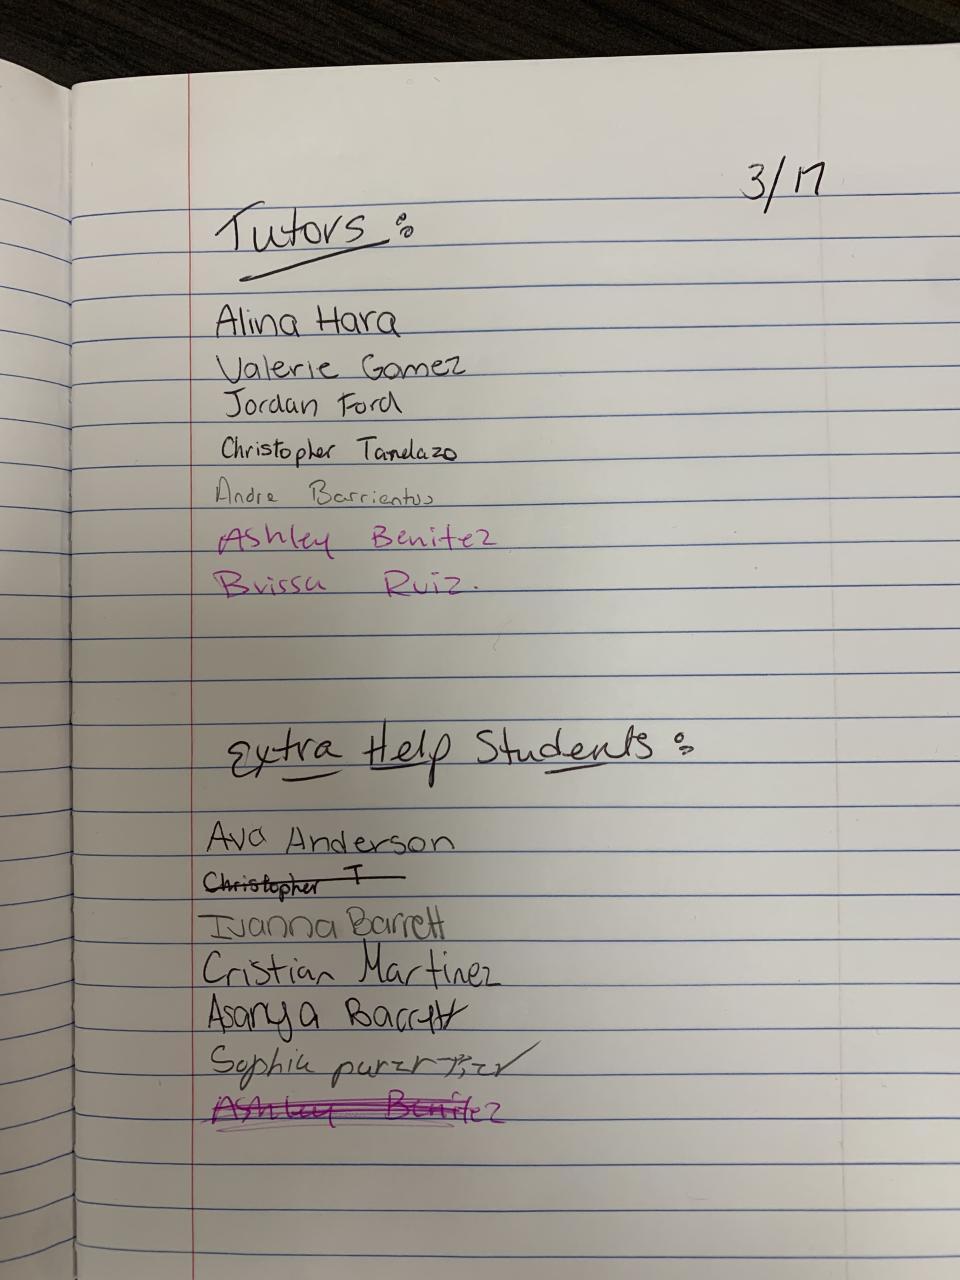 3/17
Tutors:
Alina Hara
Valerie Gomez
Jordan Ford
Christopher Tandazo
Andre Barrientos
Ashley Benitez
Brissa Ruiz.
Extra Help Students:
Ava Anderson
Christopher T
Ivanna Barrett
Cristian Martinez
Asanya Barrett
Sophia
Ashley Benitez